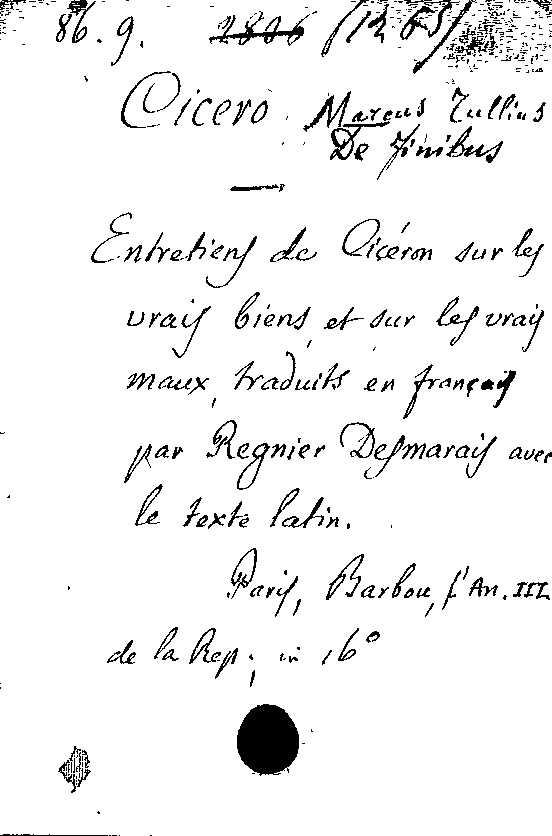 86.9. 2806 (1263)
Cicero Marcus Tullius
De Finibus
Entretiens de Cicéron sur les
vrais biens et sur les vrais
maux, traduits en français
par Regnier Desmarais avec
le texte latin.
Paris, Barbou, l'An. III
de la Rep.; in 16°